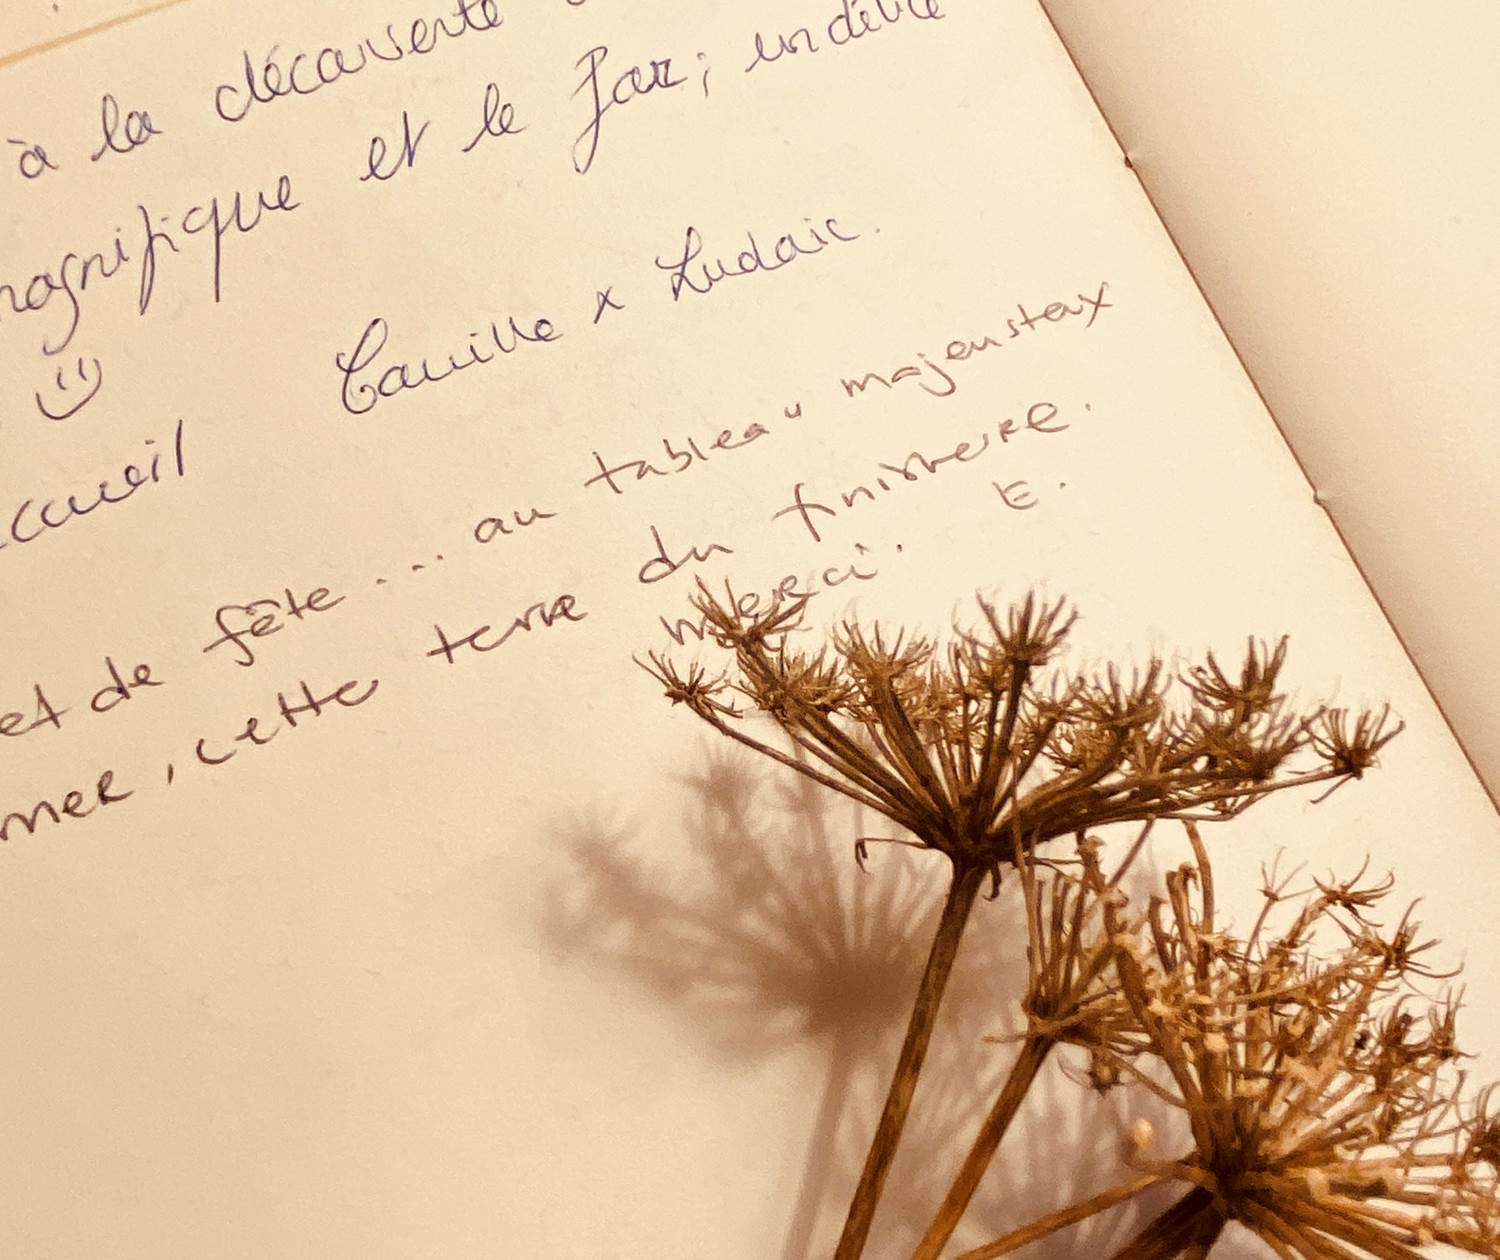 à la découverte
magnifique et le far; un délice
☺
ccueil Camille x Ludovic.
et de fête... au tableau majeusteux
mer, cette terre du finistere.
merci. E.